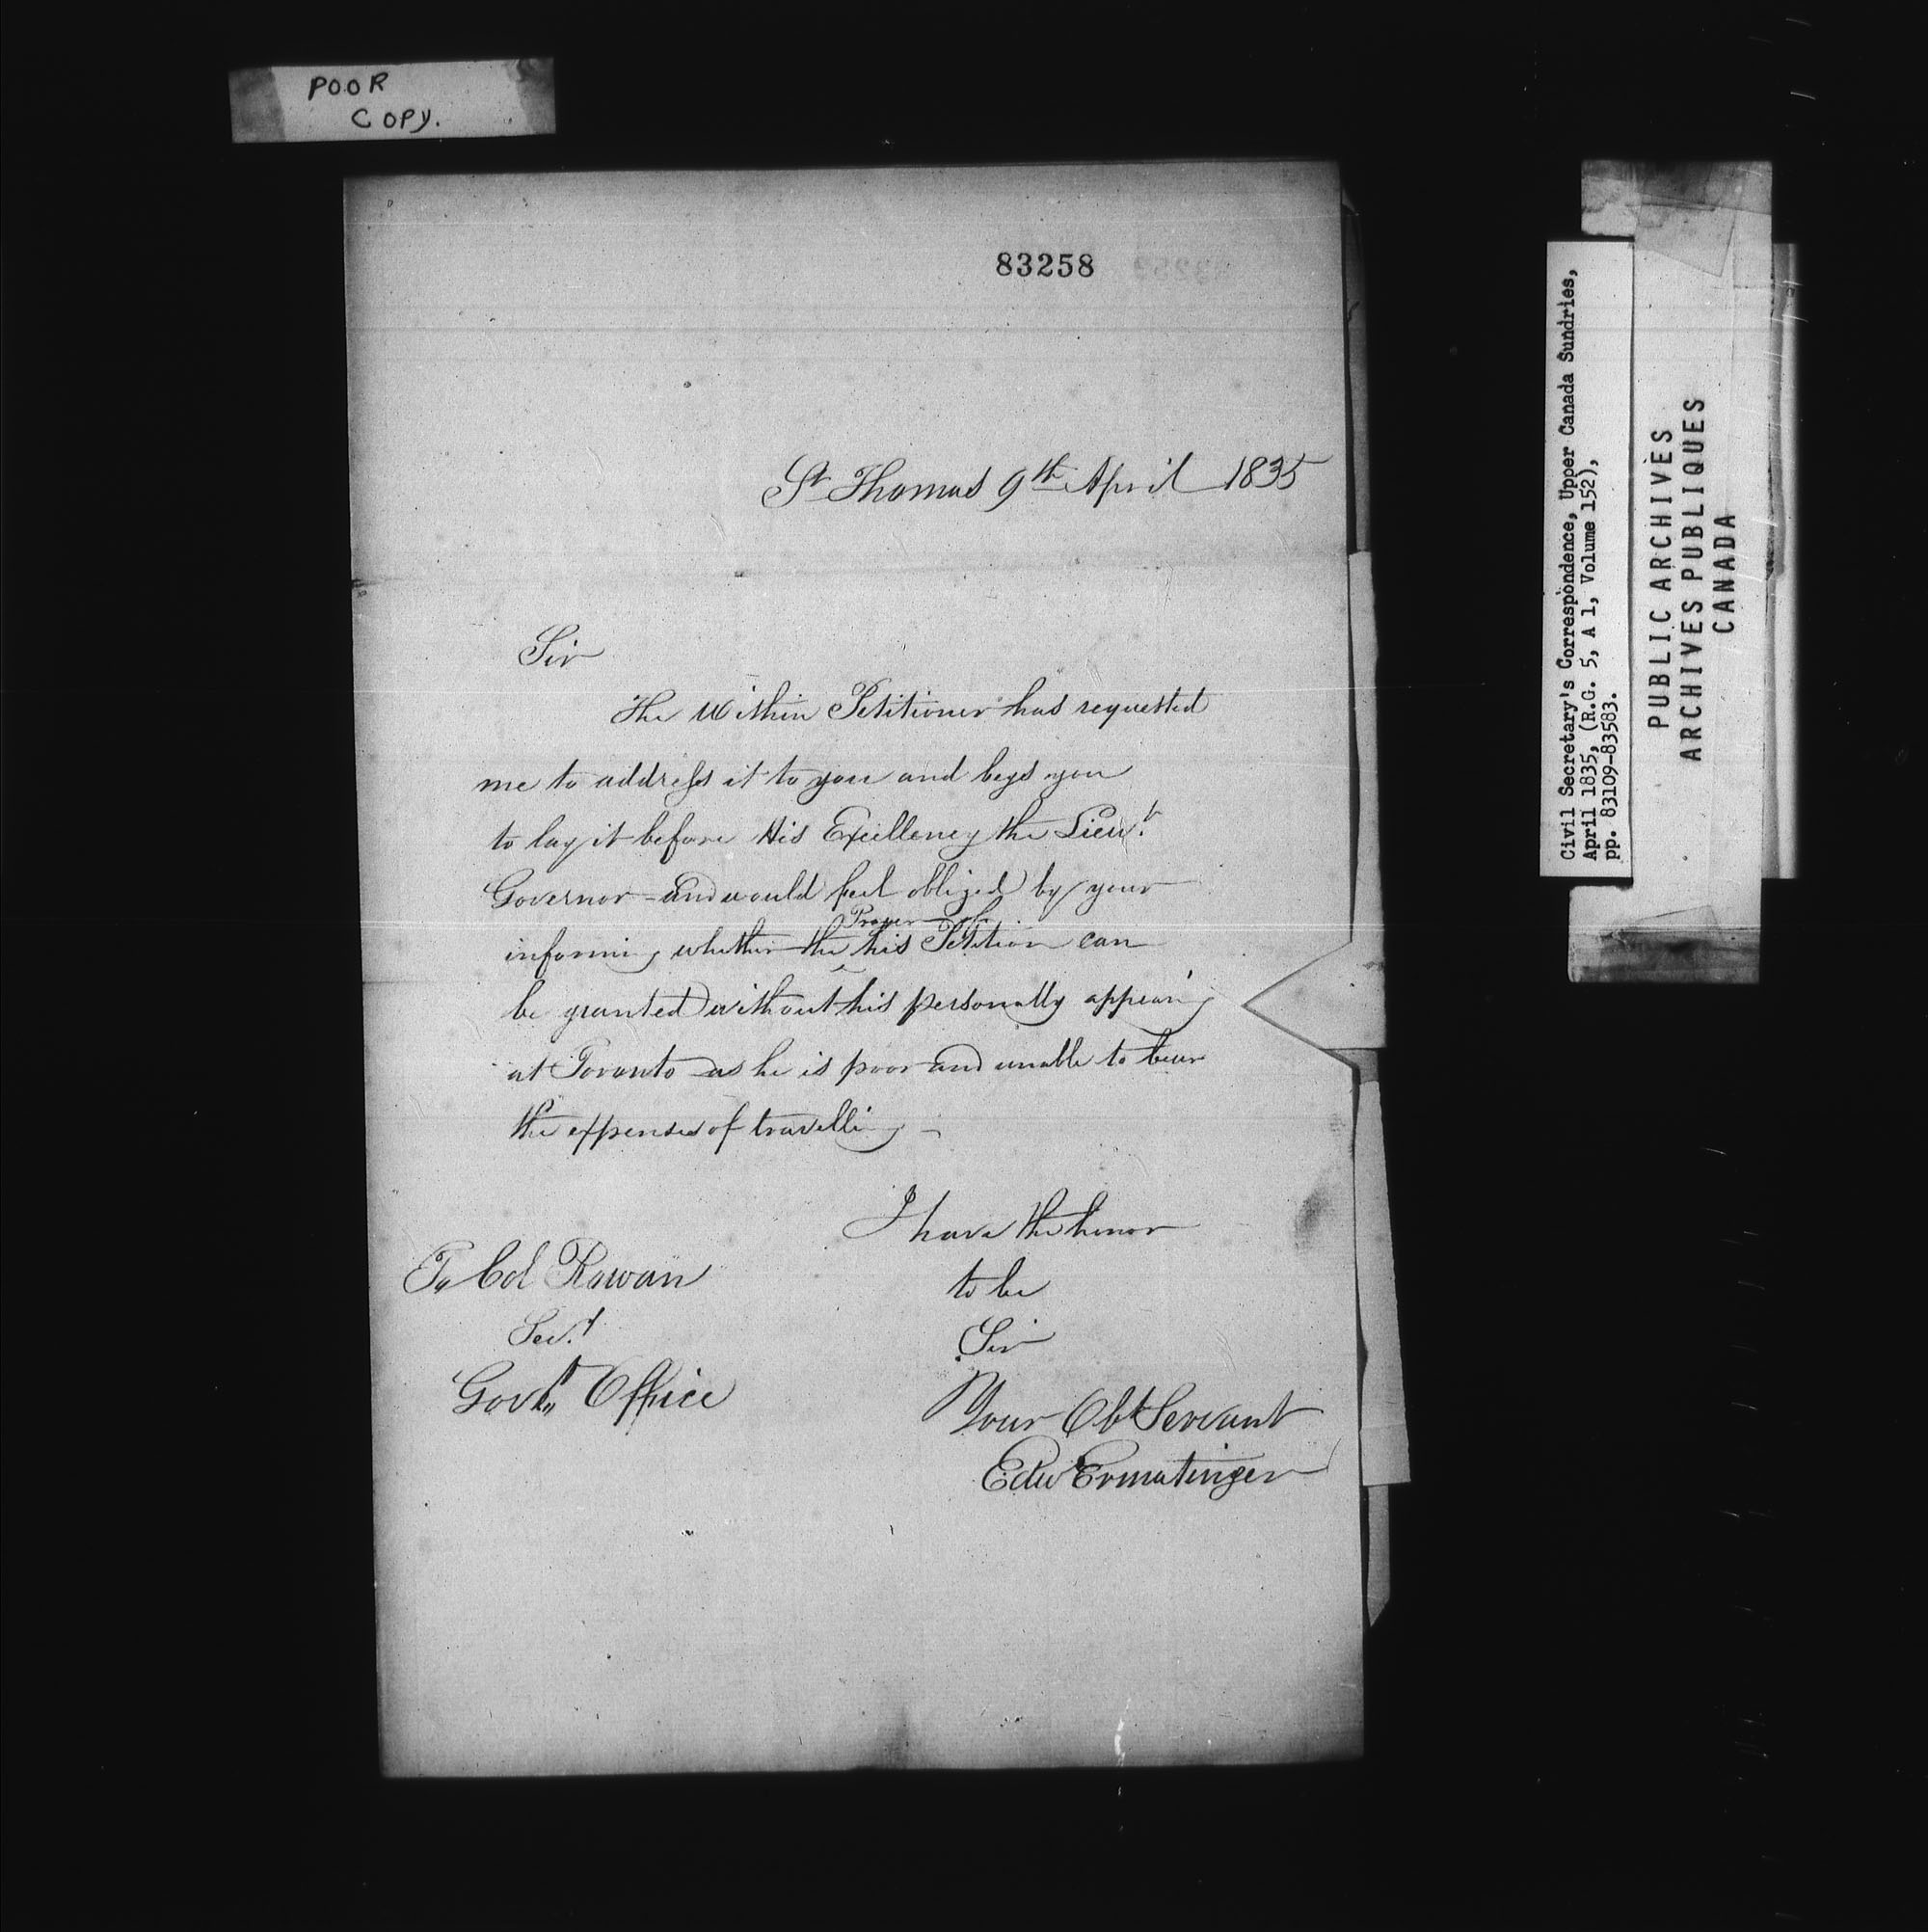 POOR
COPY.
83258
St Thomas 9th April 1835
Sir
The Within Petitioner has requested
me to address it to you and begs you
to lay it before His Excellency the Lieut
Governor and would feel obliged by your
Prayer of
informing whether the his Petition can
be granted without his personally appearing
at Toronto as he is poor and unable to bear
the expenses of travelling -
I have the honor
to be
Sir
Your Obt Servant
Edw Ermatinger
To Col Rowan
Govt Office
Civil Secretary's Correspondence, Upper Canada Sundries,
April 1835, (R.G. 5, A 1, Volume 152),
pp. 83109-83583.
PUBLIC ARCHIVES
ARCHIVES PUBLIQUES
CANADA